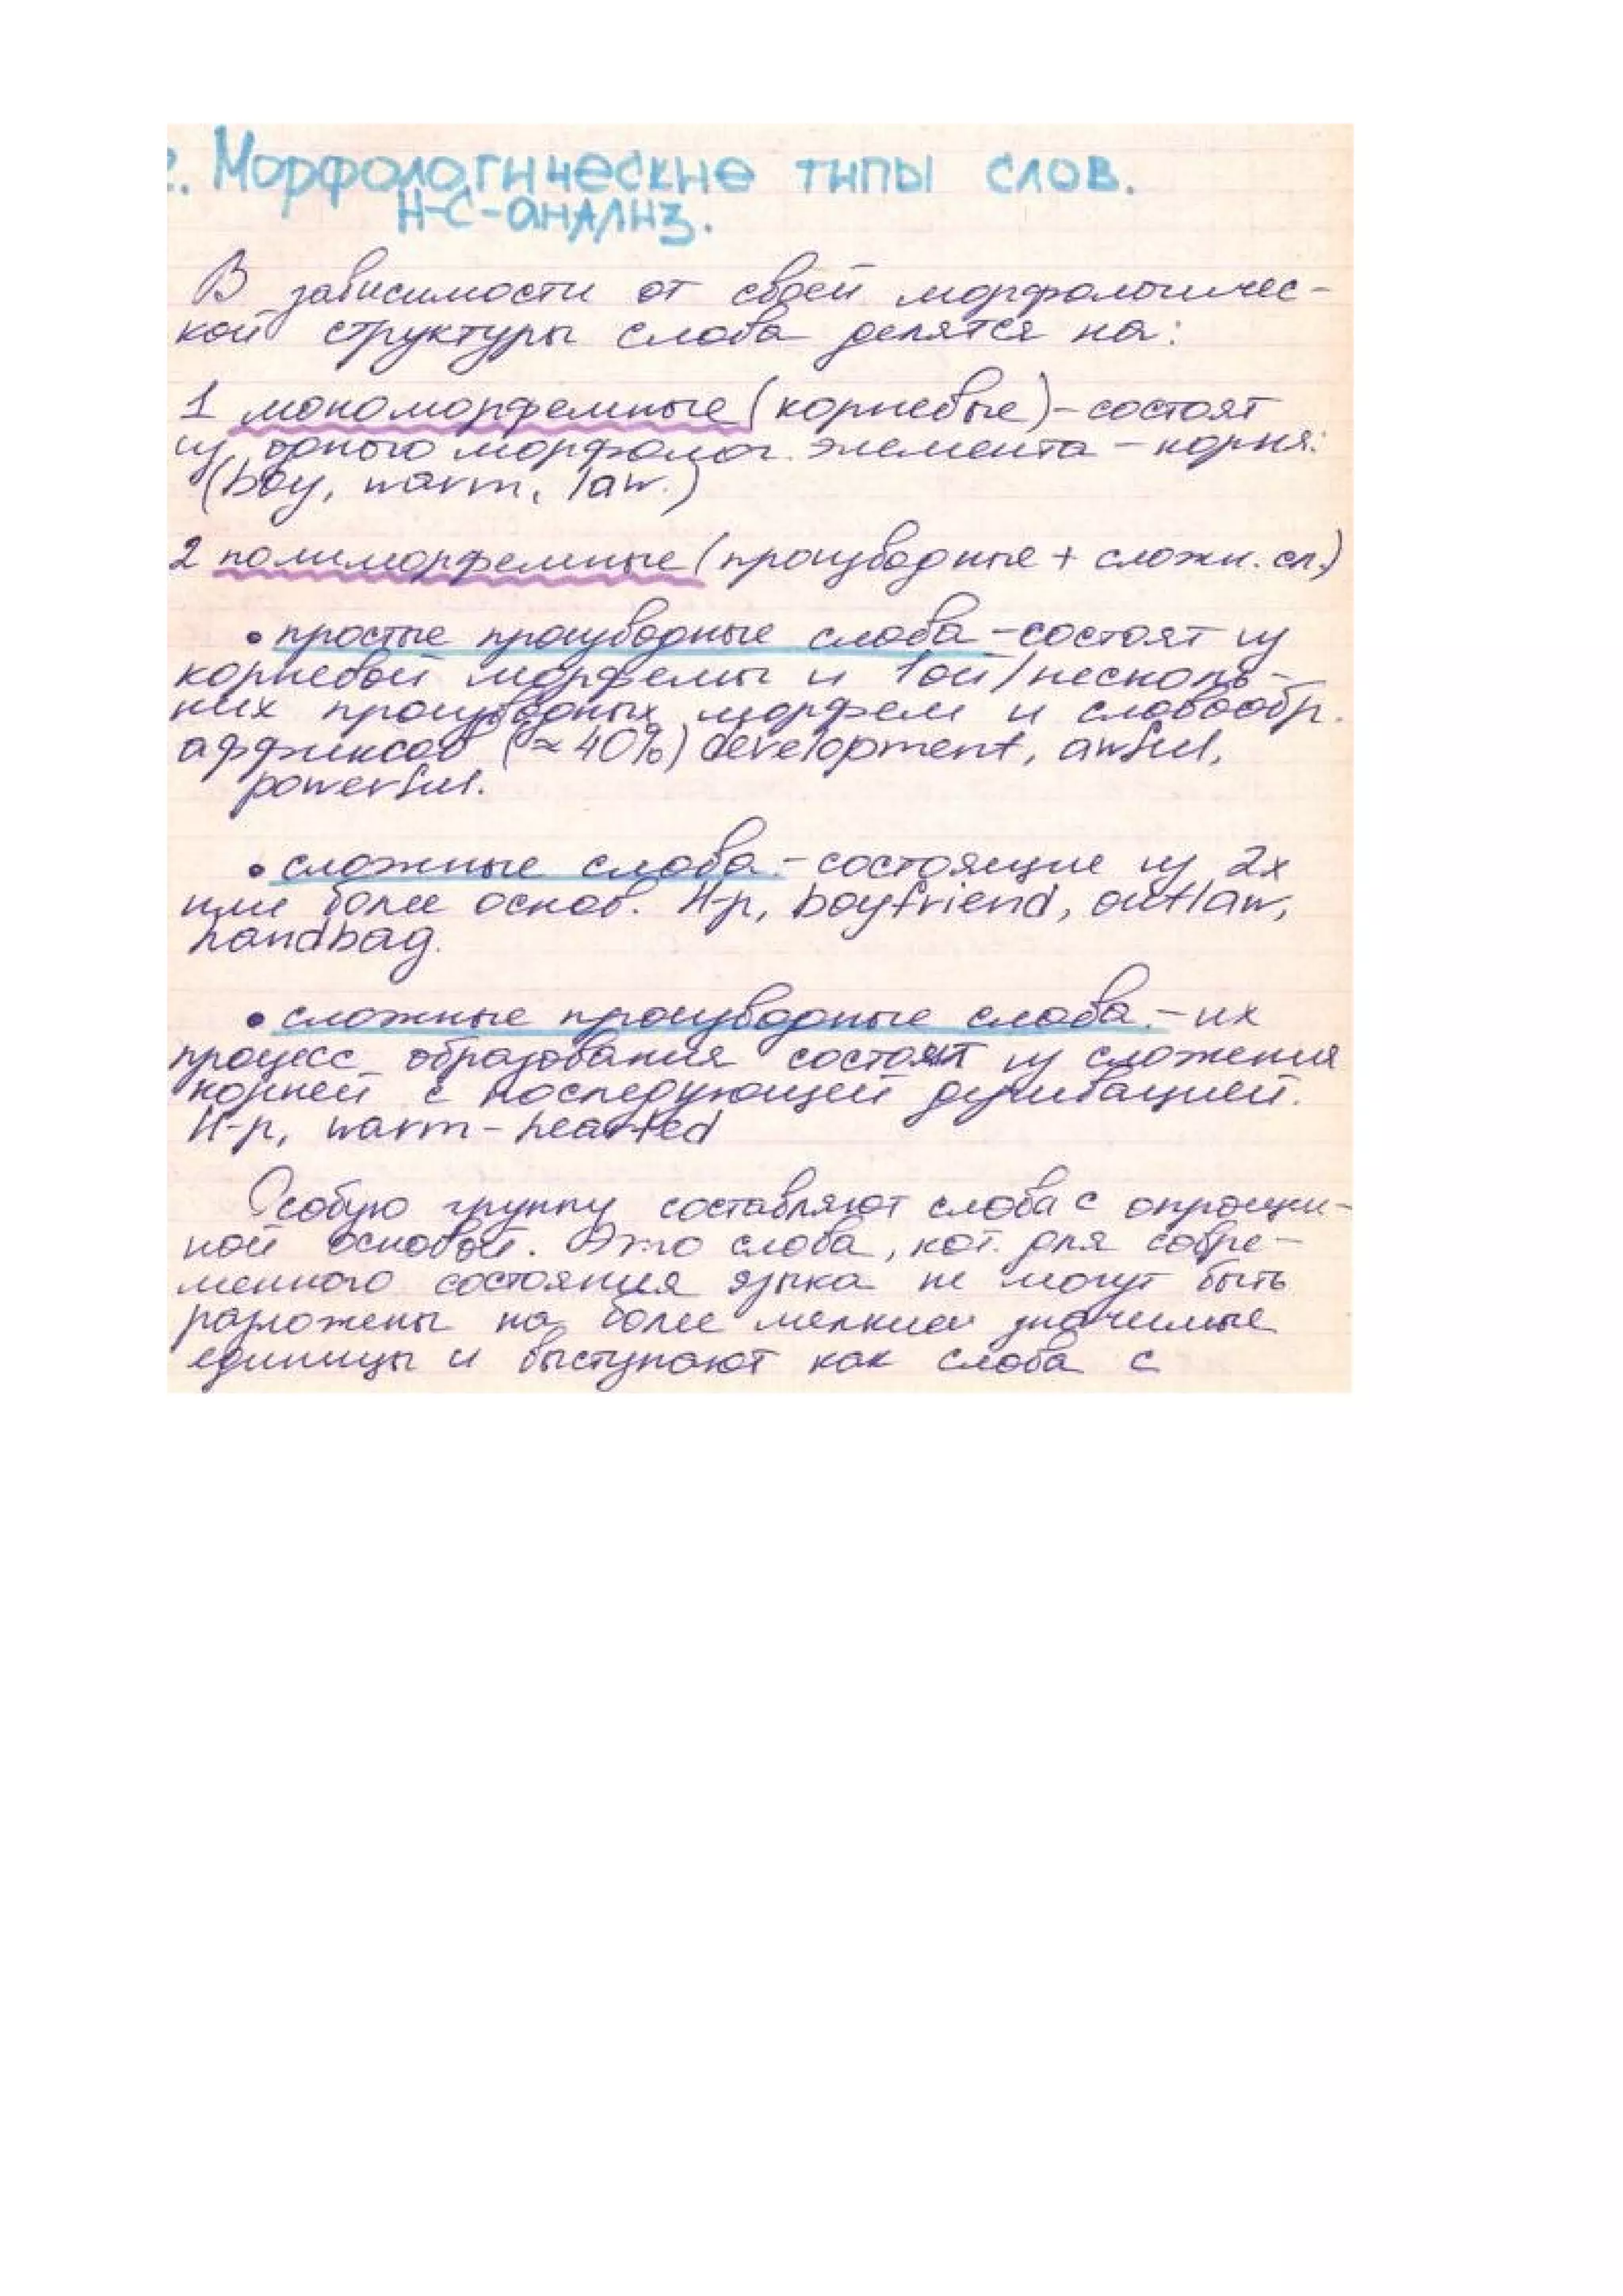 2. Морфологические типы слов.
Н-С-анализ.
В зависимости от своей морфологичес-
кой структуры слова делятся на:
1 мономорфемные (корневые) - состоят
из одного морфолог. элемента - корня:
(boy, warm, law.)
2 полиморфемные (производные + сложн. сл.)
• простые производные слова - состоят из
корневой морфемы и 1ой/несколь-
ких производных морфем и словообр.
аффиксов (≈ 40%) development, awful,
powerful.
• сложные слова - состоящие из 2х
или более основ. Н-р, boyfriend, outlaw,
handbag.
• сложные производные слова. - их
процесс образования состоит из сложения
корней с последующей деривацией.
Н-р, warm-hearted
Особую группу составляют слова с опрощен-
ной основой. Это слова, кот. для совре-
менного состояния языка не могут быть
разложены на более мелкие значимые
единицы и выступают как слова с